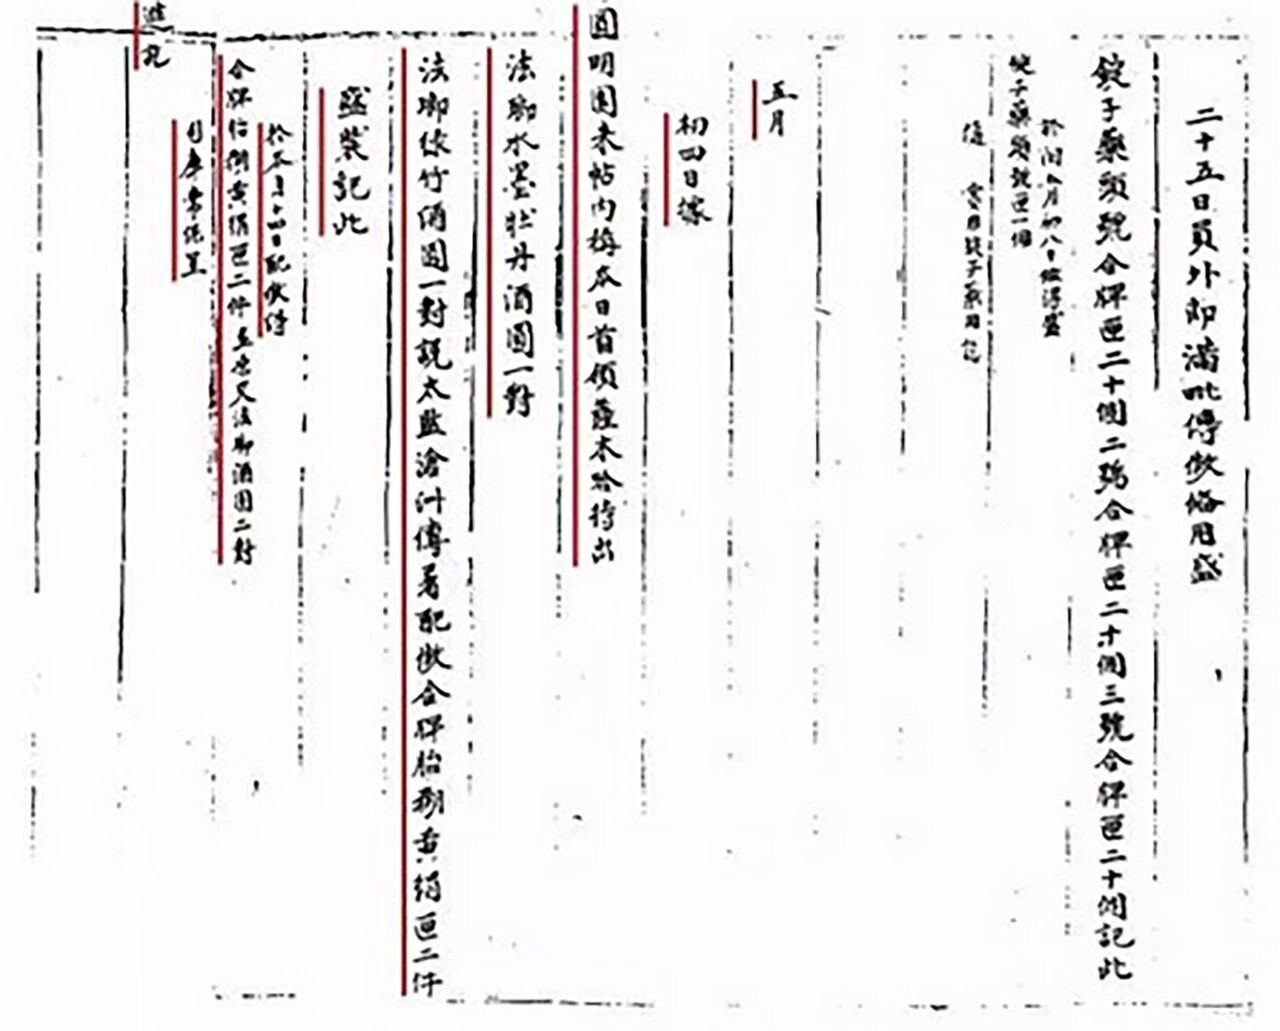 二十五日員外郎滿毗傳做備用盛
錠子藥頭號合牌匣二十個二號合牌匣二十個三號合牌匣二十個記此
於閏月初八日做得盛
錠子藥頭號匣一個
五月
初四日據
圓明園來帖內稱本日首領薩木哈持出
法瑯水墨牡丹酒圓一對
法瑯綠竹酒圓一對說太監滄洲傳著配做合牌胎糊黃絹匣二件
盛裝記此
於本月十四日配做得
合牌胎糊黃絹匣二件並原交法瑯酒圓二對
司庫常保呈
進訖